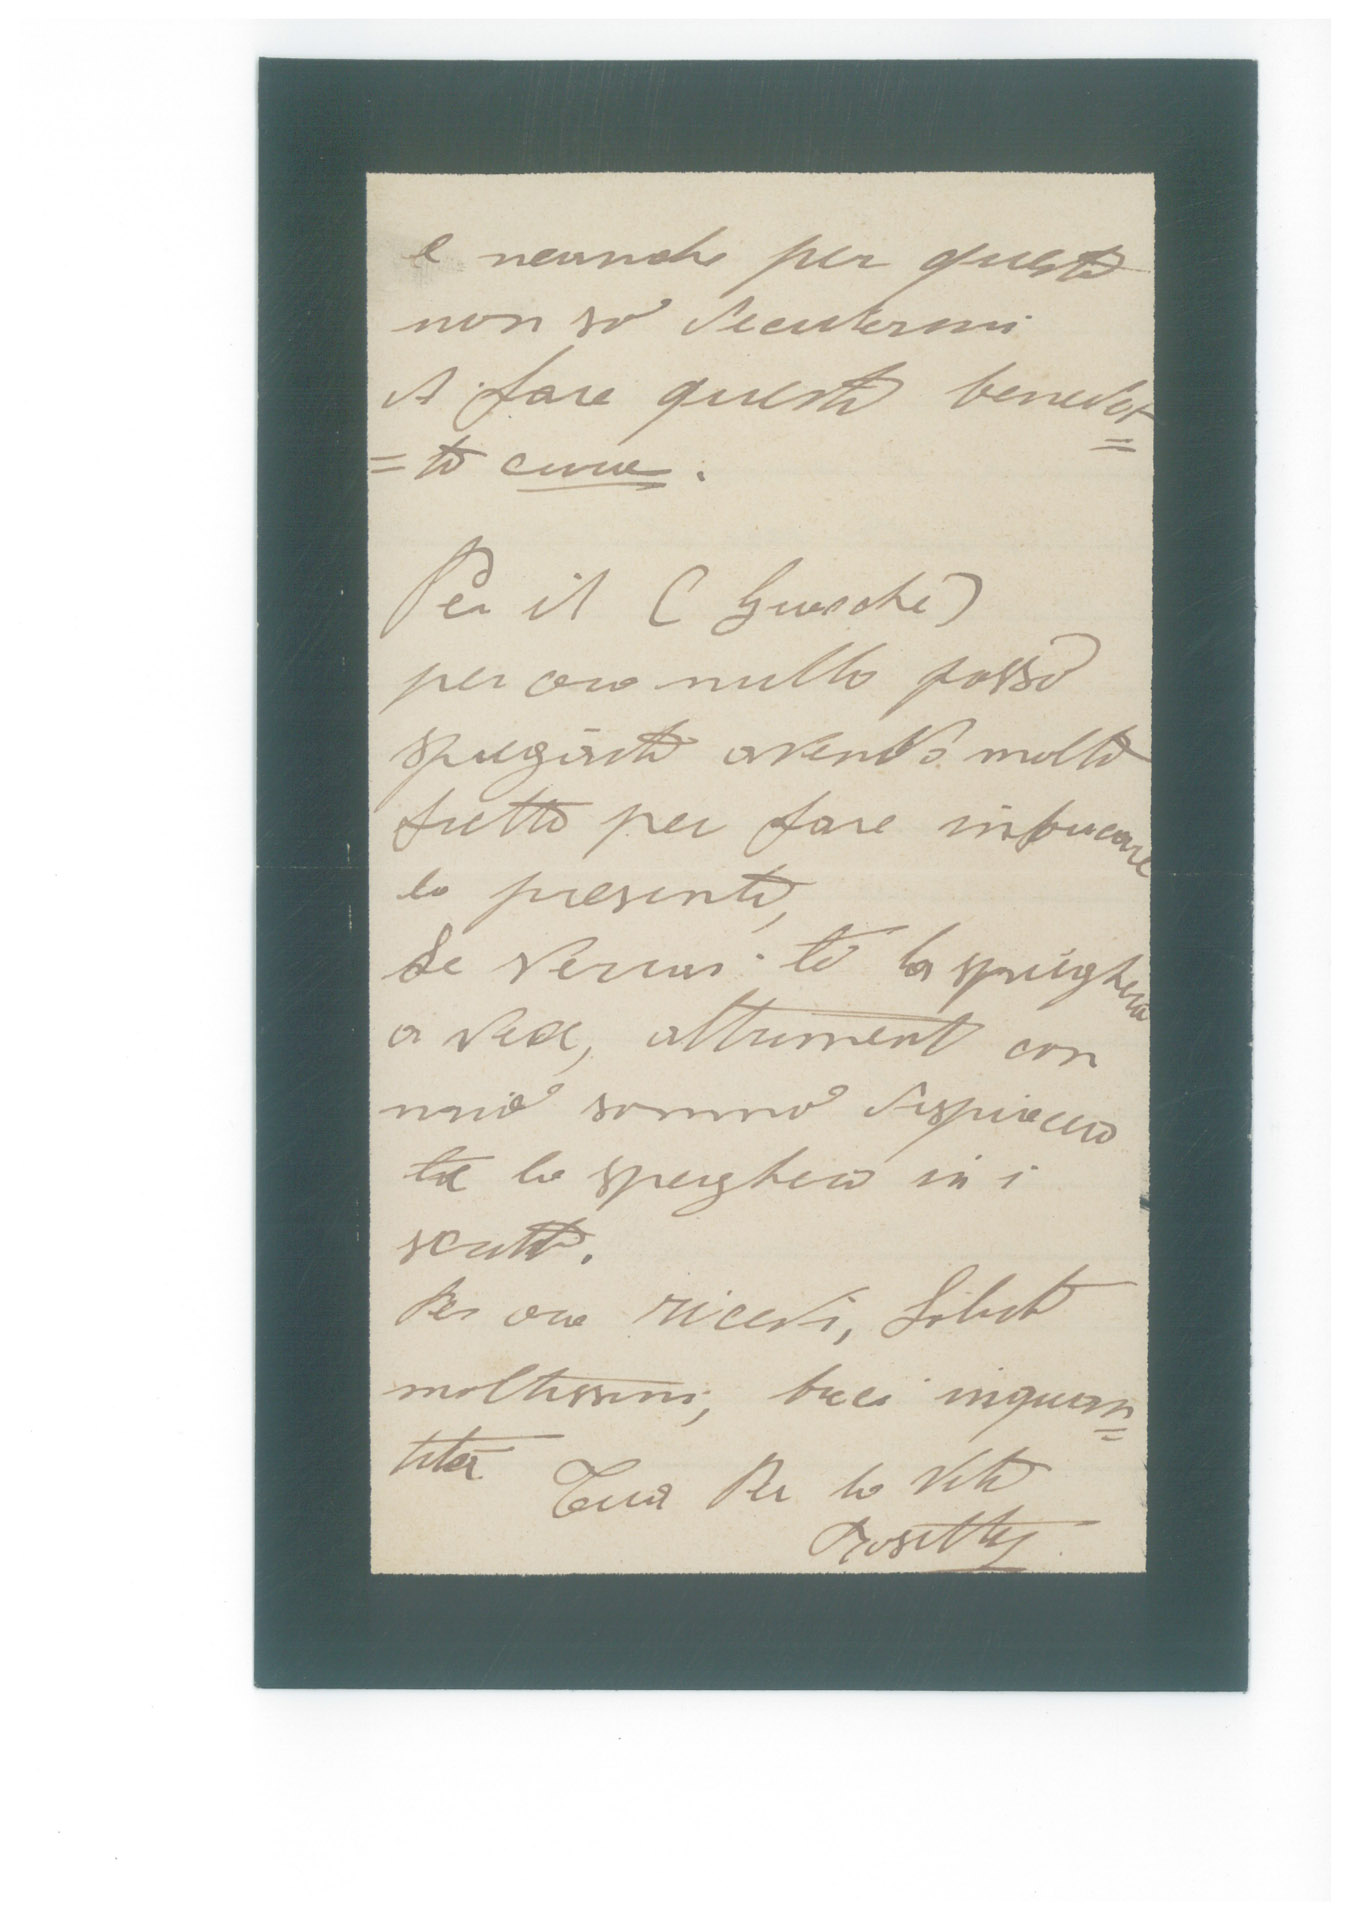 e neanche per questo
non so decidermi
a fare questa benedet=
=ta cura.
Per il (Guasche)
per ora nulla posso
spiegarti avendo molta
fretta per fare inbucare
la presente,
Se verrai te la spiegherò
a voce, altrimenti con
mio sommo dispiacere
te la spiegherò in i
scritto.
Per ora ricevi, Saluti
moltissimi, baci inquan=
tità
Tua Per la vita
Rosetta